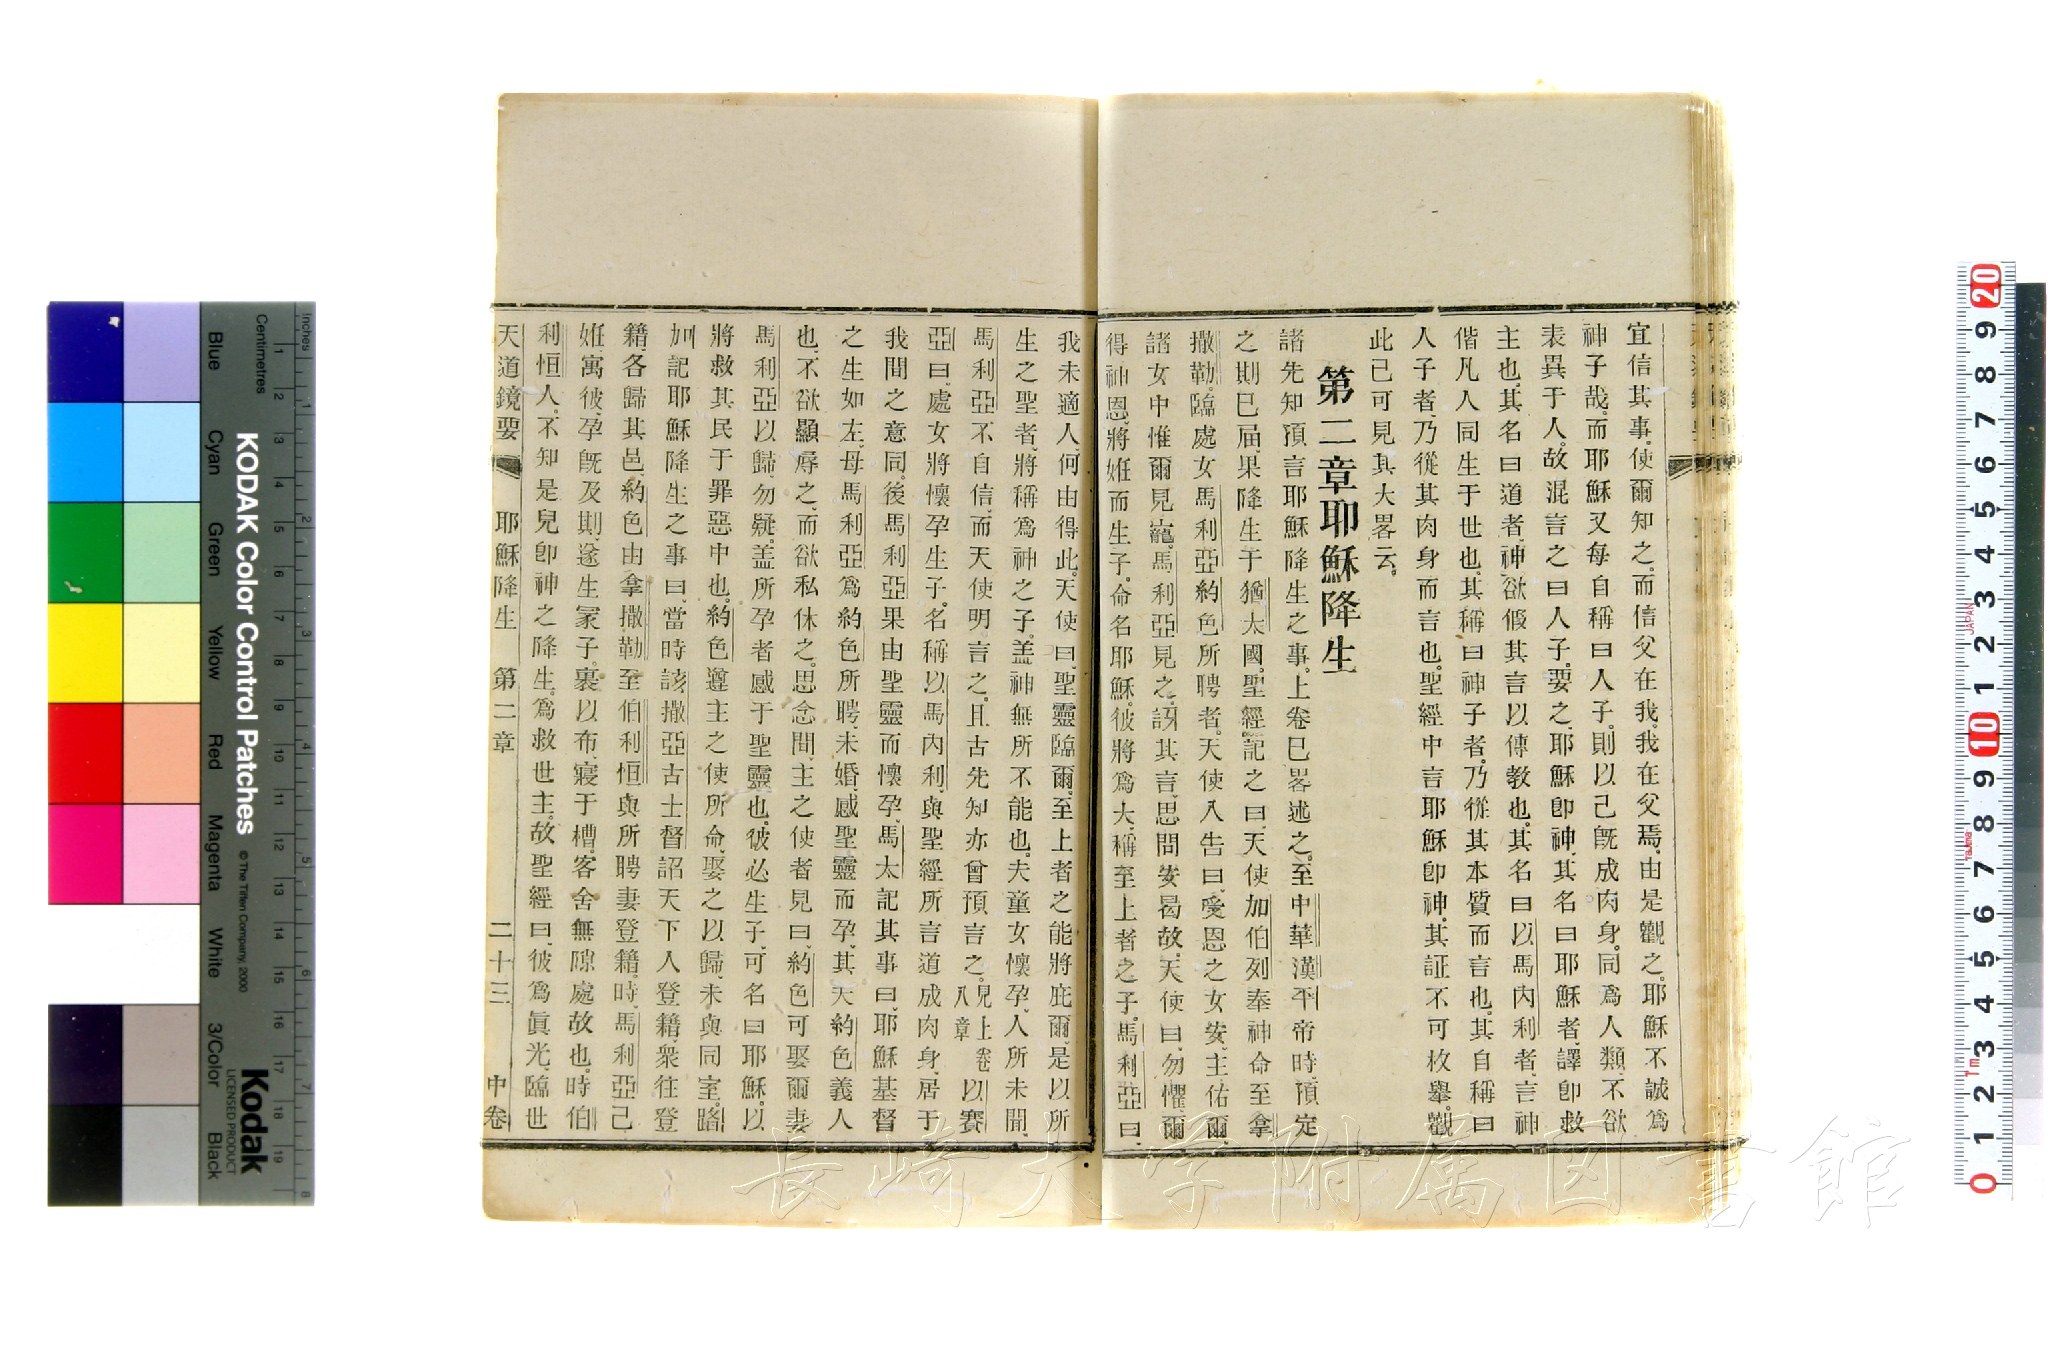 宜信其事、使爾知之。而信父在我、我在父焉。由是觀之、耶穌不誠爲
神子哉。而耶穌又每自稱曰人子。則以己旣成肉身、同爲人類、不欲
表異于人。故混言之曰人子。要之、耶穌卽神、其名曰耶穌者、譯卽救
主也、其名曰道者、神欲假其言以傳教也。其名曰以馬內利者、言神
偕凡人同生于世也、其稱曰神子者、乃從其本質而言也。其自稱曰
人子者、乃從其肉身而言也。聖經中言耶穌卽神、其証不可枚舉。觀
此已可見其大畧云。
第二章耶穌降生
諸先知預言耶穌降生之事、上卷已畧述之。至中華漢平帝時、預定
之期已屆、果降生于猶太國。聖經記之曰、天使加伯列奉神命至拿
撒勒、臨處女馬利亞約色所聘者。天使入告曰、受恩之女安、主佑爾、
諸女中惟爾見寵。馬利亞見之、訝其言、思問安曷故。天使曰、勿懼、爾
得神恩、將姙而生子、命名耶穌。彼將爲大、稱至上者之子。馬利亞曰、
我未適人、何由得此。天使曰、聖靈臨爾、至上者之能將庇爾、是以所
生之聖者、將稱爲神之子。蓋神無所不能也。夫童女懷孕、人所未聞、
馬利亞不自信、而天使明言之。且古先知亦曾預言之、見上卷八章以賽
亞曰、處女將懷孕生子、名稱以馬內利、與聖經所言道成肉身、居于
我間之意同。後馬利亞果由聖靈而懷孕、馬太記其事曰、耶穌基督
之生如左、母馬利亞爲約色所聘、未婚、感聖靈而孕、其夫約色義人
也、不欲顯辱之、而欲私休之。思念間、主之使者見曰、約色可娶爾妻
馬利亞以歸、勿疑。蓋所孕者感于聖靈也。彼必生子、可名曰耶穌、以
將救其民于罪惡中也。約色遵主之使所命、娶之以歸、未與同室。路
加記耶穌降生之事曰、當時該撒亞古士督詔天下人登籍、衆往登
籍、各歸其邑、約色由拿撒勒至伯利恒與所聘妻登籍。時馬利亞已
姙、寓彼、孕旣及期、遂生冢子、裹以布、寢于槽、客舍無隙處故也。時伯
利恒人、不知是兒卽神之降生、爲救世主。故聖經曰、彼爲眞光、臨世
天道鏡要　耶穌降生　第二章　二十三　中卷
KODAK Color Control Patches
© The Tiffen Company, 2000
Kodak
LICENSED PRODUCT
Inches
Centimetres
Blue Cyan Green Yellow Red Magenta White 3/Color Black
長崎大学附属図書館
JAPAN